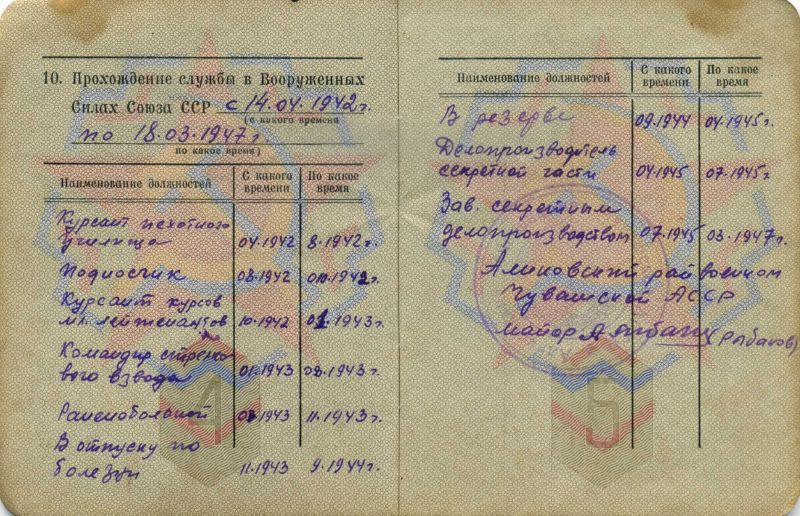 10. Прохождение службы в Вооруженных
Силах Союза ССР с 14.04.1942г.
(с какого времени
по 18.03.1947г.
по какое время)
Наименование должностей С какого времени По какое время
Курсант пехотного
училища 04.1942 8.1942г.
Подносчик 08.1942 010.1942г.
Курсант курсов
мл. лейтенантов 10.1942 01.1943г.
Командир стрелко
вого взвода 01.1943 08.1943г.
Раненобольной 08.1943 11.1943г.
В отпуску по
болезни 11.1943 9.1944г.
4
Наименование должностей С какого времени По какое время
В резерве 09.1944 04.1945г.
Делопроизводитель
секретной части 04.1945 07.1945г.
Зав. секретным
делопроизводством 07.1945 03.1947г.
райвоенком
Чувашской АССР
майор (Рыбаков)
5